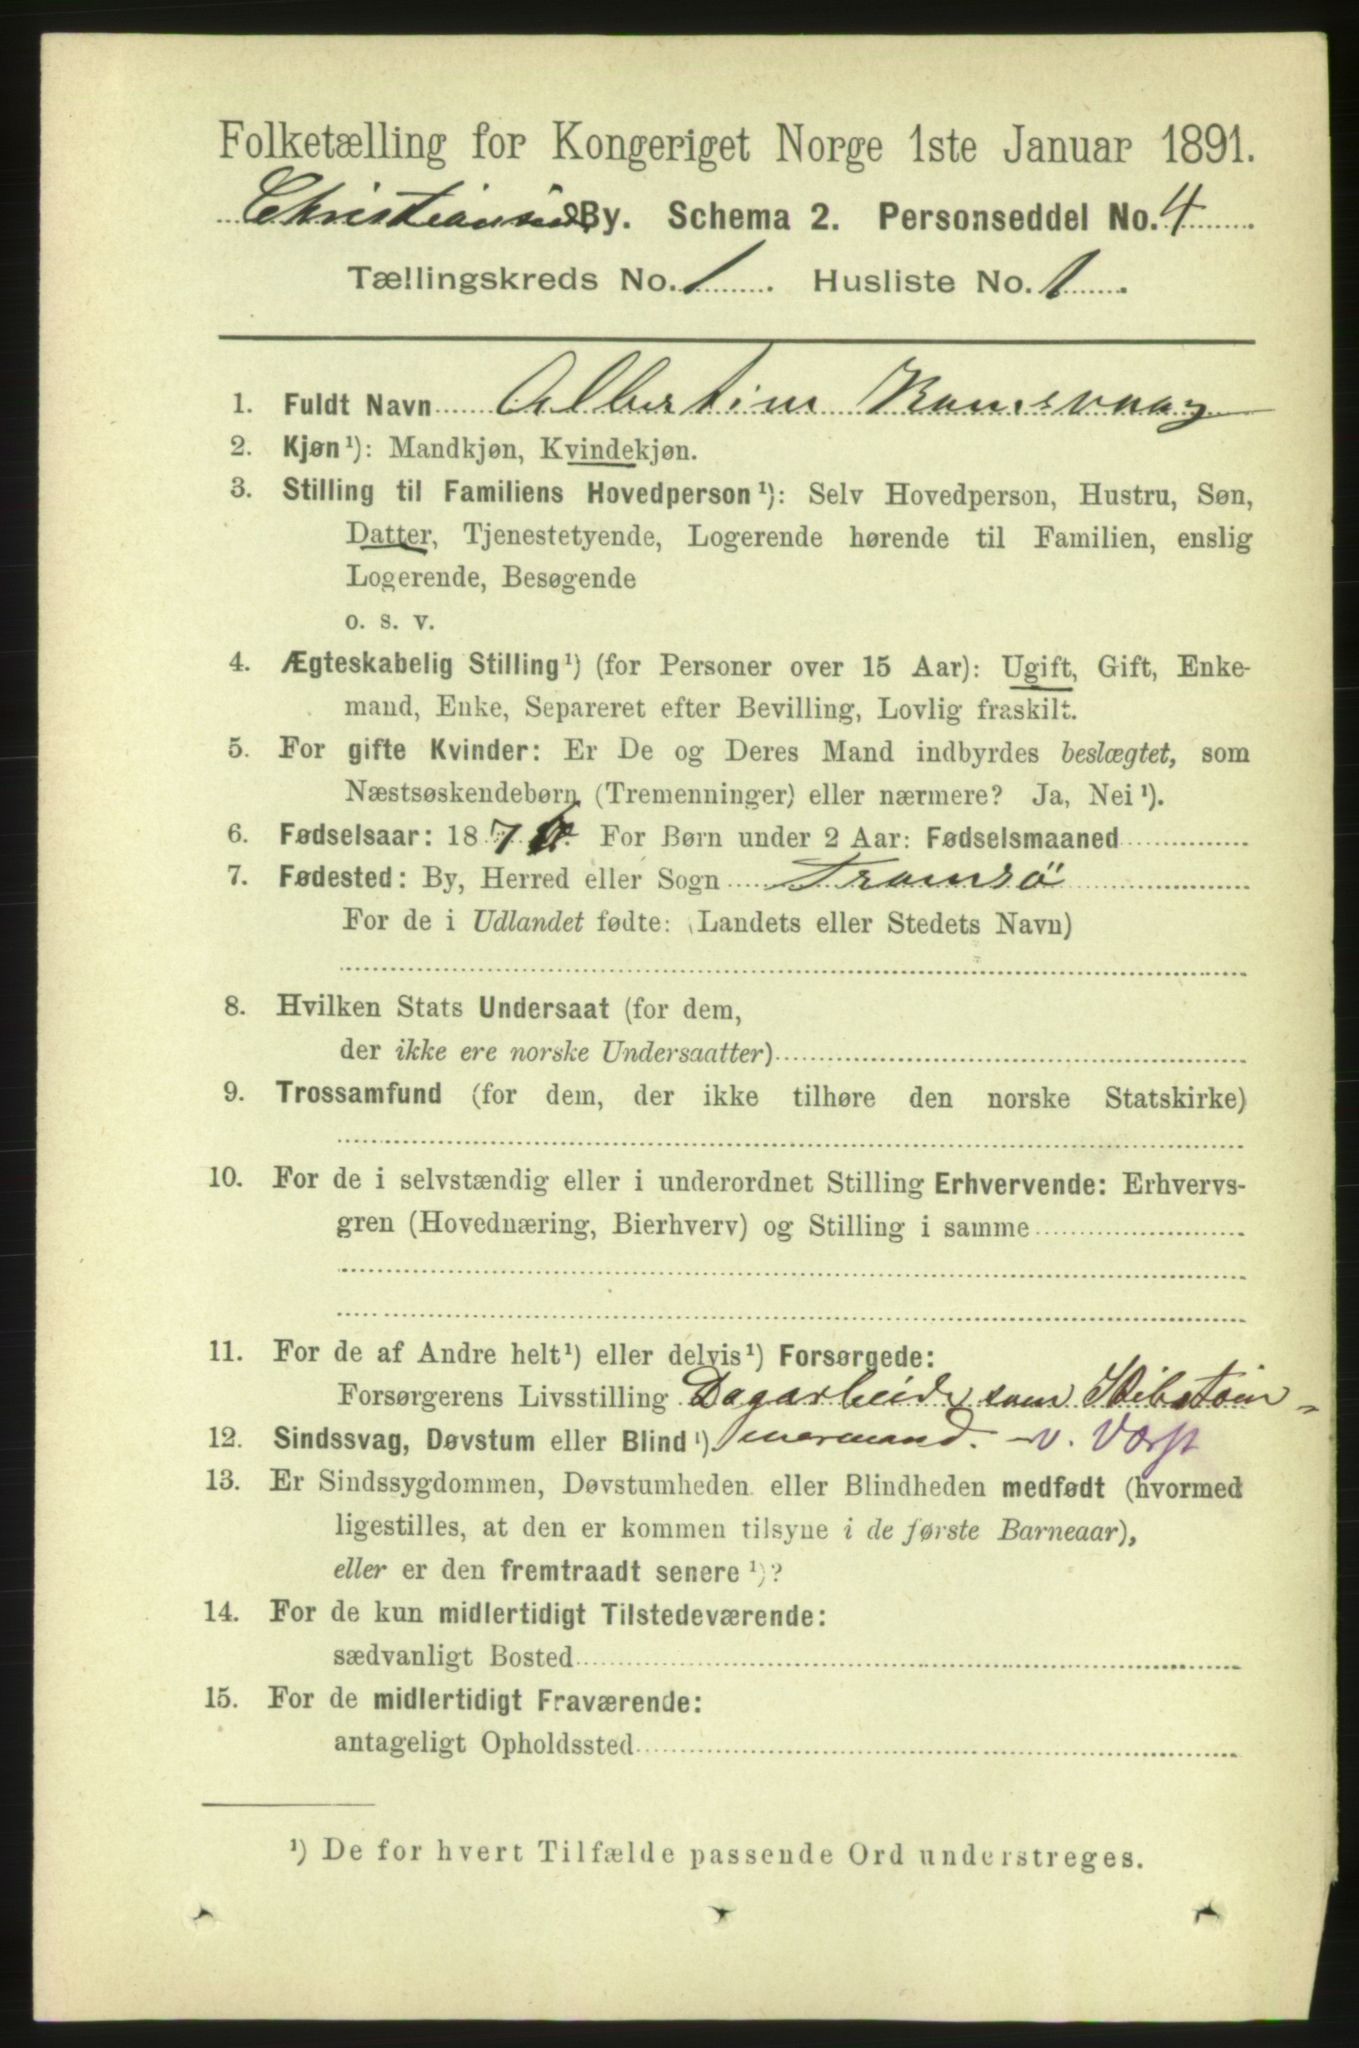 Folketælling for Kongeriget Norge 1ste Januar 1891.
Christiansund By. Schema 2. Personseddel No. 4
Tællingskreds No. 1. Husliste No. 1.
1. Fuldt Navn Albertine
2. Kjøn ¹): Mandkjøn, Kvindekjøn.
3. Stilling til Familiens Hovedperson ¹): Selv Hovedperson, Hustru, Søn,
Datter, Tjenestetyende, Logerende hørende til Familien, enslig
Logerende, Besøgende
o. s. v.
4. Ægteskabelig Stilling ¹) (for Personer over 15 Aar): Ugift, Gift, Enke-
mand, Enke, Separeret efter Bevilling, Lovlig fraskilt.
5. For gifte Kvinder: Er De og Deres Mand indbyrdes beslægtet, som
Næstsøskendebørn (Tremenninger) eller nærmere? Ja, Nei ¹).
6. Fødselsaar: 187 For Børn under 2 Aar: Fødselsmaaned
7. Fødested: By, Herred eller Sogn Tromsö
For de i Udlandet fødte: (Landets eller Stedets Navn)
8. Hvilken Stats Undersaat (for dem,
der ikke ere norske Undersaatter)
9. Trossamfund (for dem, der ikke tilhøre den norske Statskirke)
10. For de i selvstændig eller i underordnet Stilling Erhvervende: Erhvervs-
gren (Hovednæring, Bierhverv) og Stilling i samme
11. For de af Andre helt ¹) eller delvis ¹) Forsørgede:
Forsørgerens Livsstilling Dagarbeide som Skibstöm-
12. Sindssvag, Døvstum eller Blind ¹) mermand. v. Værft
13. Er Sindssygdommen, Døvstumheden eller Blindheden medfødt (hvormed
ligestilles, at den er kommen tilsyne i de første Barneaar),
eller er den fremtraadt senere ¹)?
14. For de kun midlertidigt Tilstedeværende:
sædvanligt Bosted
15. For de midlertidigt Fraværende:
antageligt Opholdssted
¹) De for hvert Tilfælde passende Ord understreges.